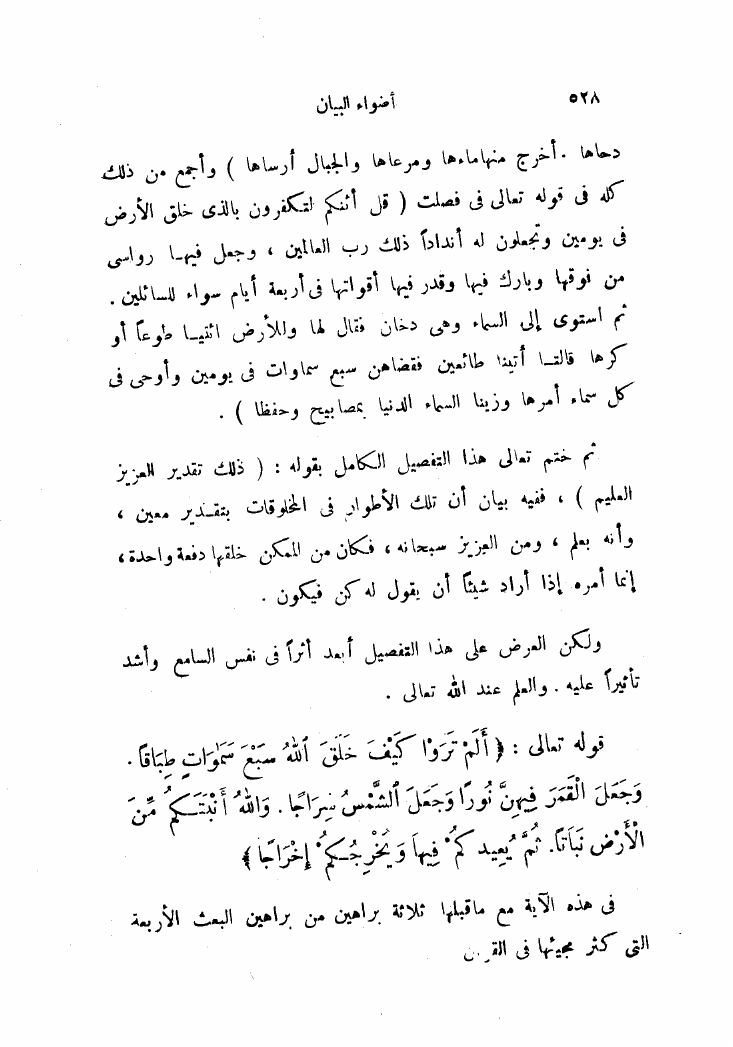 ٥٢٨
أضواء البيان
دحاها . أخرج منهاماءها ومرعاها والجبال أرساها ) وأجمع من ذلك
كله فى قوله تعالى فى فصلت ( قل أئنكم لتكفرون بالذى خلق الأرض
فى يومين وتجعلون له أنداداً ذلك رب العالمين ، وجعل فيهـا رواسى
من فوقها وبارك فيها وقدر فيها أقواتها فى أربعة أيام سواء للسائلين .
ثم استوى إلى السماء وهى دخان فقال لها وللأرض ائتيـا طوعاً أو
كرها قالتـا أتينا طائعين فقضاهن سبع سماوات فى يومين وأوحى فى
كل سماء أمرها وزينا السماء الدنيا بمصابيح وحفظا ) .
ثم ختم تعالى هذا التفصيل الكامل بقوله : ( ذلك تقدير العزيز
العليم ) ، ففيه بيان أن تلك الأطوار فى المخلوقات بتقـدير معين ،
وأنه بعلم ، ومن العزيز سبحانه ، فكان من الممكن خلقها دفعة واحدة ،
إنما أمره إذا أراد شيئاً أن يقول له كن فيكون .
ولكن العرض على هذا التفصيل أبعد أثراً فى نفس السامع وأشد
تأثيراً عليه . والعلم عند الله تعالى .
قوله تعالى : ﴿ أَلَمْ تَرَوْا كَيْفَ خَلَقَ ٱللهُ سَبْعَ سَمَٰوَاتٍ طِبَاقاً .
وَجَعَلَ الْقَمَرَ فِيهِنَّ نُورًا وَجَعَلَ ٱلشَّمْسَ سِرَاجًا . وَاللهُ أَنْبَتَـكُم مِّنَ
الْأَرْضِ نَبَاتاً. ثُمَّ يُعِيدُكُمْ فِيهاَ وَيُخْرِجُـكُمْ إِخْرَاجًا ﴾
فى هذه الآية مع ماقبلها ثلاثة براهين من براهين البعث الأربعة
التى كثر مجيئها فى